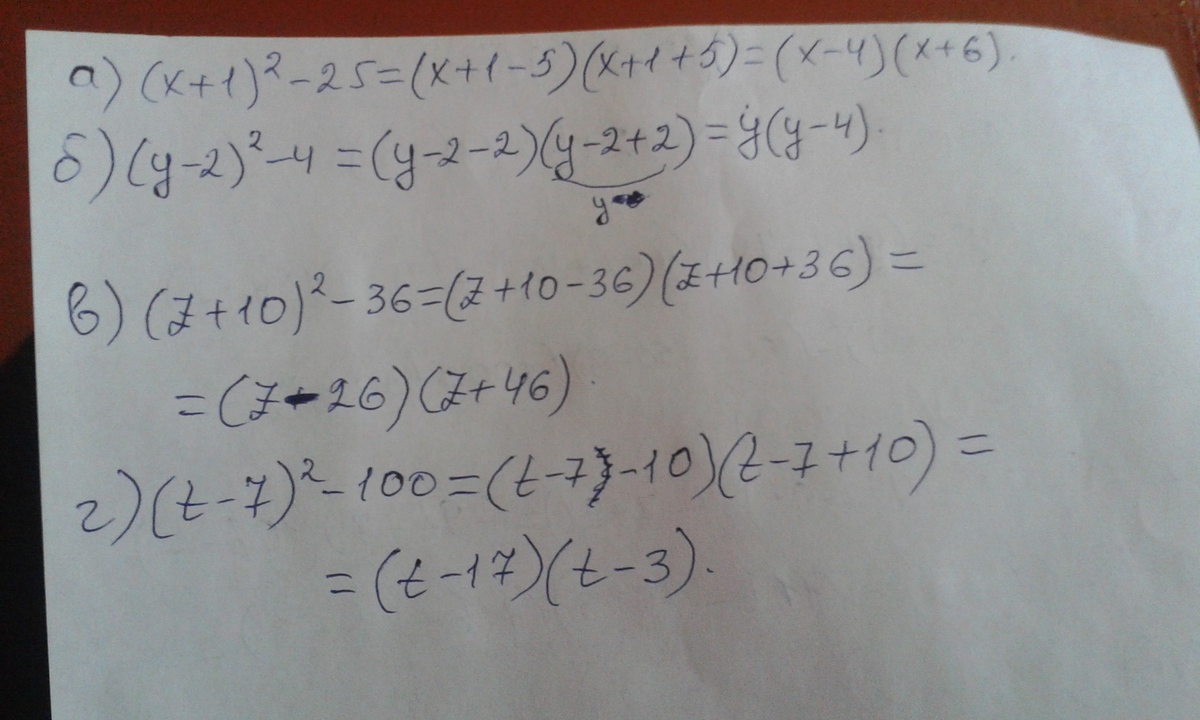 а) (x+1)² - 25 = (x+1-5)(x+1+5) = (x-4)(x+6).
б) (y-2)² - 4 = (y-2-2)(y-2+2) = y(y-4).
y
в) (z+10)² - 36 = (z+10-36)(z+10+36) =
= (z-26)(z+46).
г) (t-7)² - 100 = (t-7-10)(t-7+10) =
= (t-17)(t-3).